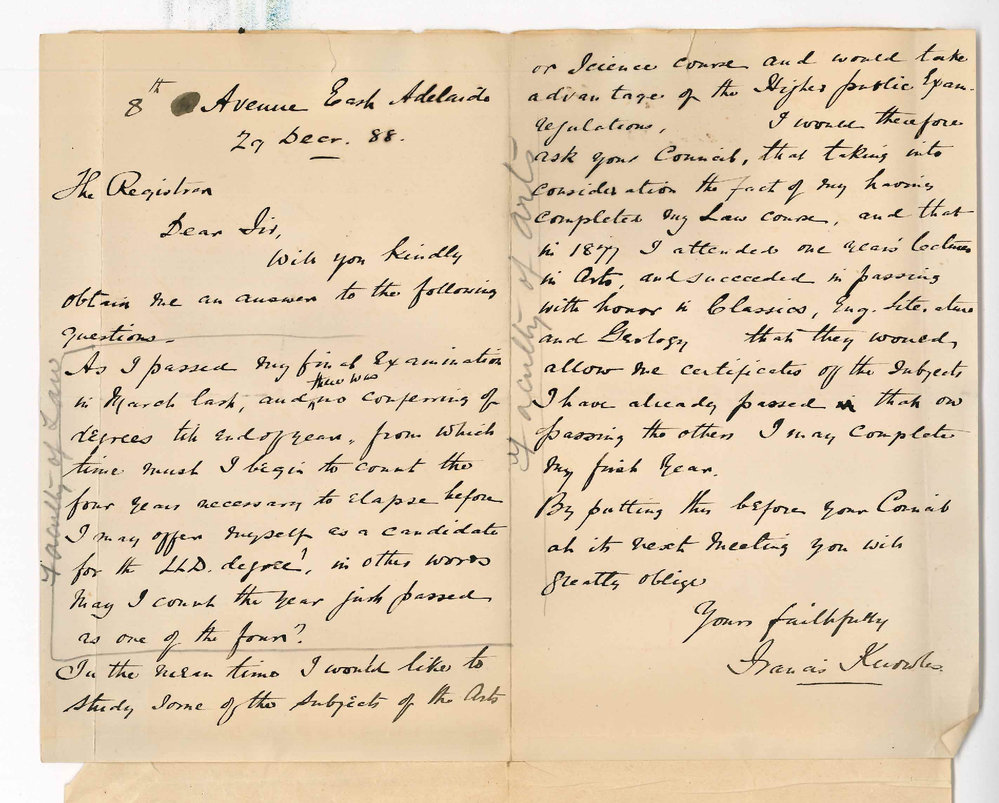 8th Avenue East Adelaide
29 Decr. 88.
The Registrar
Dear Sir,
Will you kindly
obtain me an answer to the following
questions.
As I passed my final Examination
in March last, and there was no conferring of
degrees till end of year, from which
time must I begin to count the
four years necessary to elapse before
I may offer myself as a candidate
for the LLD. degree?, in other words
may I count the year just passed
as one of the four?
In the mean time I would like to
study some of the subjects of the Arts
Faculty of Law
or Science course and would take
advantage of the Higher public Exam.
regulations. I would therefore
ask your Council, that taking into
consideration the fact of my having
completed my Law course, and that
in 1877 I attended one year's lectures
in Arts, and succeeded in passing
with honor in Classics, Eng. Literature
and Geology that they would,
allow me certificates of the subjects
I have already passed that on
passing the others I may complete
my first year.
By putting this before your Council
at its next meeting you will
greatly oblige
Yours faithfully
Francis Knowles
Faculty of Arts